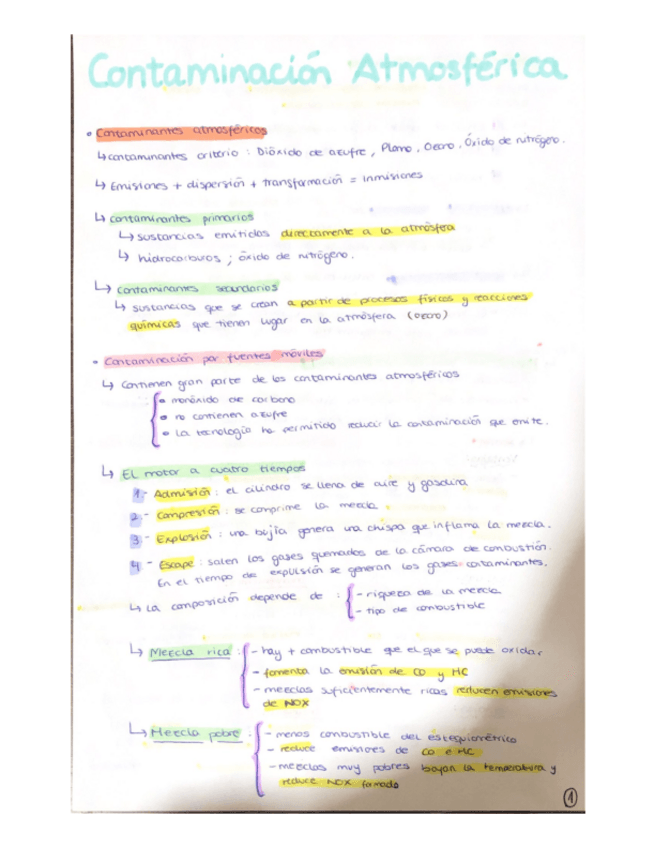 Contaminación Atmosférica
• Contaminantes atmosféricos
↳ contaminantes criterio : Dióxido de azufre, Plomo, Ozono, Óxido de nitrógeno.
↳ Emisiones + dispersión + transformación = Inmisiones
↳ contaminantes primarios
↳ sustancias emitidas directamente a la atmósfera
↳ hidrocarburos ; óxido de nitrógeno.
↳ contaminantes secundarios
↳ sustancias que se crean a partir de procesos físicos y reacciones
químicas que tienen lugar en la atmósfera (ozono)
• Contaminación por fuentes móviles
↳ Contienen gran parte de los contaminantes atmosféricos
• monóxido de carbono
• no contienen azufre
• La tecnología ha permitido reducir la contaminación que emite.
↳ El motor a cuatro tiempos
1.- Admisión : el cilindro se llena de aire y gasolina
2.- Compresión : se comprime la mezcla
3.- Explosión : una bujía genera una chispa que inflama la mezcla.
4.- Escape : salen los gases quemados de la cámara de combustión.
En el tiempo de expulsión se generan los gases contaminantes.
↳ La composición depende de : - riqueza de la mezcla
- tipo de combustible
↳ Mezcla rica : - hay + combustible que el que se puede oxidar
- fomenta la emisión de CO y HC
- mezclas suficientemente ricas reducen emisiones
de NOX
↳ Mezcla pobre : - menos combustible del estequiométrico
- reduce emisiones de CO e HC
- mezclas muy pobres bajan la temperatura y
reduce NOX formado
1